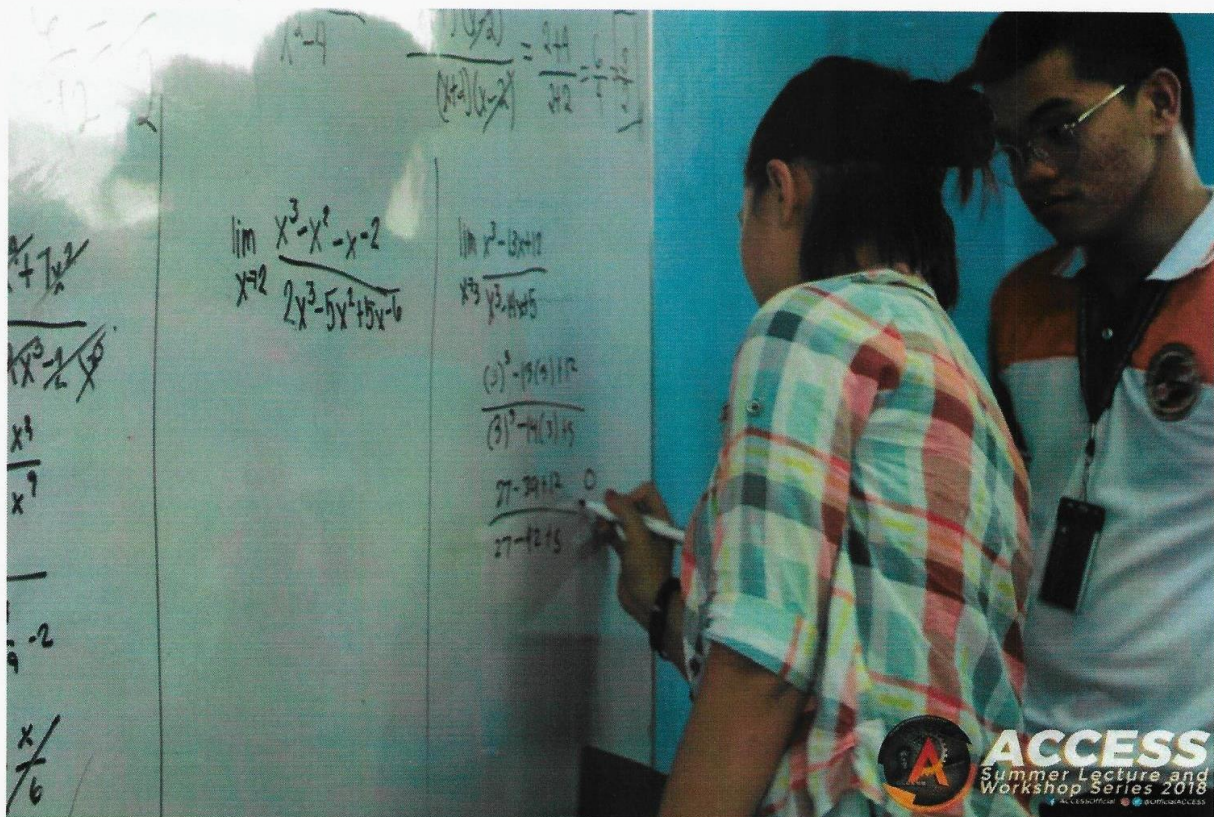 x²-4
(x+2)(x-2) = 2+4 / 2+2 = 6/4 = 3/2
+7x²
x³
x⁹
-2
x
6
lim x→2 x³-x²-x-2 / 2x³-5x²+5x-6
lim x→3 x³-13x+12 / x³-14x+5
(3)³-13(3)+12
(3)³-14(3)+5
27-39+12 0
27-42+5
A
ACCESS
Summer Lecture and
Workshop Series 2018
ACCESSOfficial @OfficialACCESS